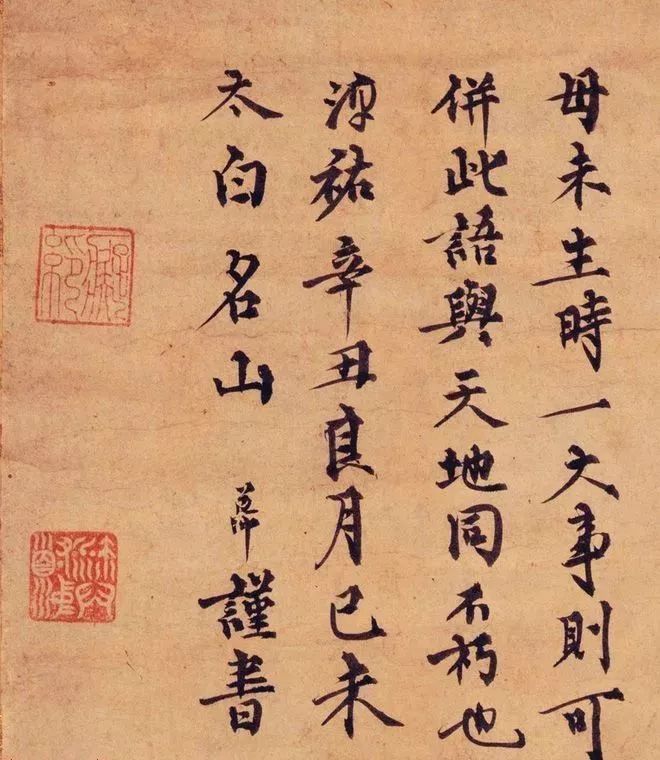 母未生時一大事則可
併此語與天地同不朽也
淳祐辛丑良月己未
太白名山 謹書